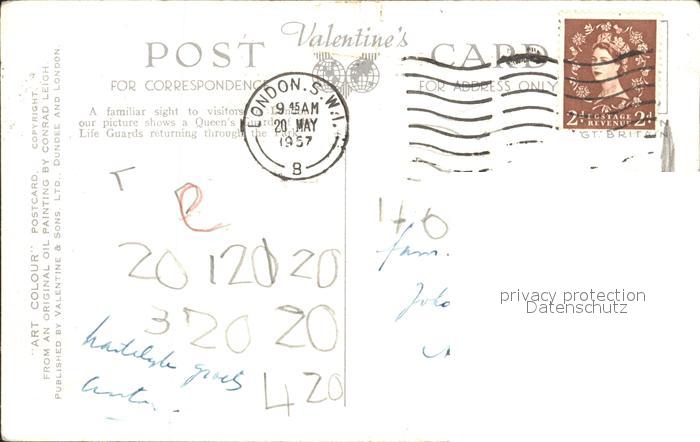 "ART COLOUR" POSTCARD. COPYRIGHT.
FROM AN ORIGINAL OIL PAINTING BY CONRAD LEIGH
PUBLISHED BY VALENTINE & SONS, LTD., DUNDEE AND LONDON.
Valentine's
POST CARD
FOR CORRESPONDENCE
FOR ADDRESS ONLY
A familiar sight to visitors
our picture shows a Queen's
Life Guards returning through the
LONDON. S.W.1.
9 45 AM
20 MAY
1957
8
2d POSTAGE REVENUE 2d
GT. BRITAIN
T
e
20 120 20
320 20
420
groets
40
fam.
privacy protection
Datenschutz